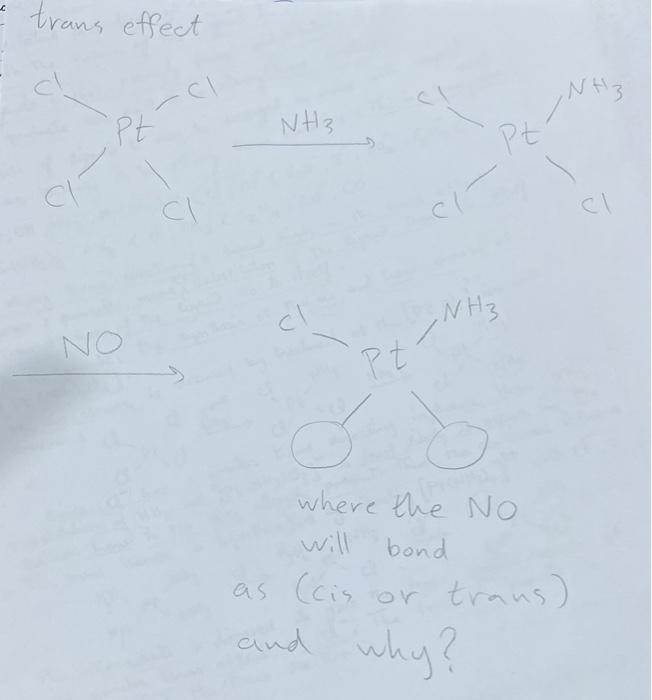 trans effect
Cl Cl Cl NH3
Pt NH3 Pt
Cl Cl Cl Cl
Cl NH3
NO Pt
where the NO
will bond
as (cis or trans)
and why?